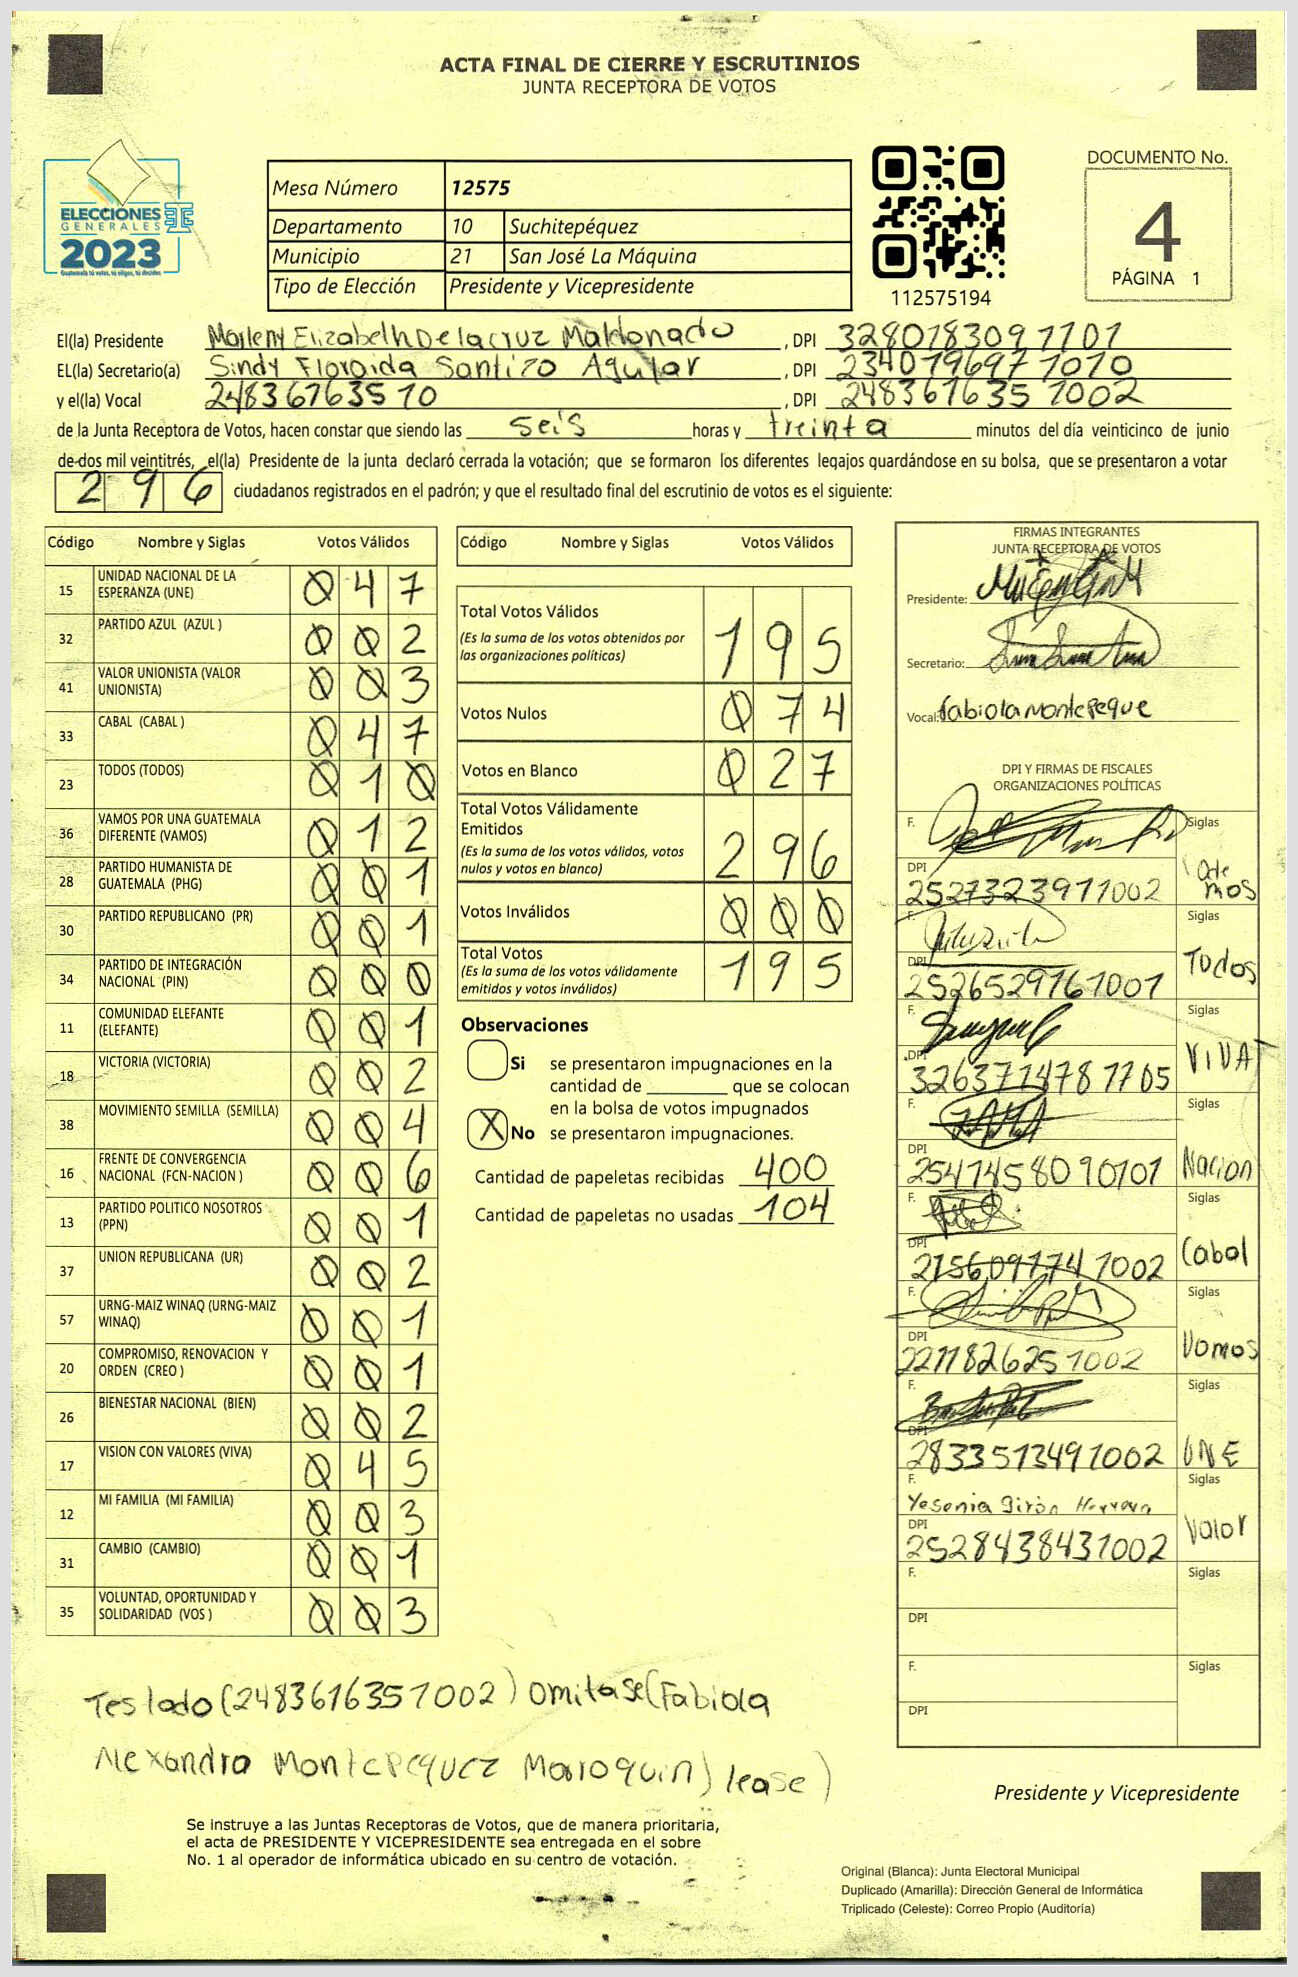 ACTA FINAL DE CIERRE Y ESCRUTINIOS
JUNTA RECEPTORA DE VOTOS
ELECCIONES
GENERALES
2023
Guatemala tú votas, tú eliges, tú decides
Mesa Número 12575
Departamento 10 Suchitepéquez
Municipio 21 San José La Máquina
Tipo de Elección Presidente y Vicepresidente
112575194
DOCUMENTO No.
4
PÁGINA 1
El(la) Presidente Marleny Elizabeth De la cruz Maldonado, DPI 3280183091101
EL(la) Secretario(a) Sindy Floroida Santizo Aguilar, DPI 2340196971010
y el(la) Vocal 24836163510, DPI 2483616351002
de la Junta Receptora de Votos, hacen constar que siendo las seis horas y treinta minutos del día veinticinco de junio
de dos mil veintitrés, el(la) Presidente de la junta declaró cerrada la votación; que se formaron los diferentes legajos guardándose en su bolsa, que se presentaron a votar
296 ciudadanos registrados en el padrón; y que el resultado final del escrutinio de votos es el siguiente:
Código Nombre y Siglas Votos Válidos
15 UNIDAD NACIONAL DE LA ESPERANZA (UNE) 047
32 PARTIDO AZUL (AZUL ) 002
41 VALOR UNIONISTA (VALOR UNIONISTA) 003
33 CABAL (CABAL ) 047
23 TODOS (TODOS) 010
36 VAMOS POR UNA GUATEMALA DIFERENTE (VAMOS) 012
28 PARTIDO HUMANISTA DE GUATEMALA (PHG) 001
30 PARTIDO REPUBLICANO (PR) 001
34 PARTIDO DE INTEGRACIÓN NACIONAL (PIN) 000
11 COMUNIDAD ELEFANTE (ELEFANTE) 001
18 VICTORIA (VICTORIA) 002
38 MOVIMIENTO SEMILLA (SEMILLA) 004
16 FRENTE DE CONVERGENCIA NACIONAL (FCN-NACION ) 006
13 PARTIDO POLITICO NOSOTROS (PPN) 001
37 UNION REPUBLICANA (UR) 002
57 URNG-MAIZ WINAQ (URNG-MAIZ WINAQ) 001
20 COMPROMISO, RENOVACION Y ORDEN (CREO ) 001
26 BIENESTAR NACIONAL (BIEN) 002
17 VISION CON VALORES (VIVA) 045
12 MI FAMILIA (MI FAMILIA) 003
31 CAMBIO (CAMBIO) 001
35 VOLUNTAD, OPORTUNIDAD Y SOLIDARIDAD (VOS ) 003
Código Nombre y Siglas Votos Válidos
Total Votos Válidos 195
(Es la suma de los votos obtenidos por
las organizaciones políticas)
Votos Nulos 074
Votos en Blanco 027
Total Votos Válidamente
Emitidos 296
(Es la suma de los votos válidos, votos
nulos y votos en blanco)
Votos Inválidos 000
Total Votos 195
(Es la suma de los votos válidamente
emitidos y votos inválidos)
Observaciones
Si se presentaron impugnaciones en la
cantidad de ________ que se colocan
en la bolsa de votos impugnados
X No se presentaron impugnaciones.
Cantidad de papeletas recibidas 400
Cantidad de papeletas no usadas 104
FIRMAS INTEGRANTES
JUNTA RECEPTORA DE VOTOS
Presidente:
Secretario:
Vocal: fabiola montepeque
DPI Y FIRMAS DE FISCALES
ORGANIZACIONES POLÍTICAS
F. Siglas
DPI
2527323911002 mos
F. Siglas
DPI
2526529161001 Todos
F. Siglas
DPI
3263714781105 VIVA
F. Siglas
DPI
2547458090101 Nacion
F. Siglas
DPI
2156091741002 Cabal
F. Siglas
DPI
2211826251002 Vamos
F. Siglas
DPI
2833513491002 UNE
F. Yesenia Girón Herrera Siglas
DPI
2528438431002 Valor
F. Siglas
DPI
F. Siglas
DPI
Teslado (2483616351002) Omitase (Fabiola
Alexandra Montepequez Maroquin) lease)
Presidente y Vicepresidente
Se instruye a las Juntas Receptoras de Votos, que de manera prioritaria,
el acta de PRESIDENTE Y VICEPRESIDENTE sea entregada en el sobre
No. 1 al operador de informática ubicado en su centro de votación.
Original (Blanca): Junta Electoral Municipal
Duplicado (Amarilla): Dirección General de Informática
Triplicado (Celeste): Correo Propio (Auditoría)